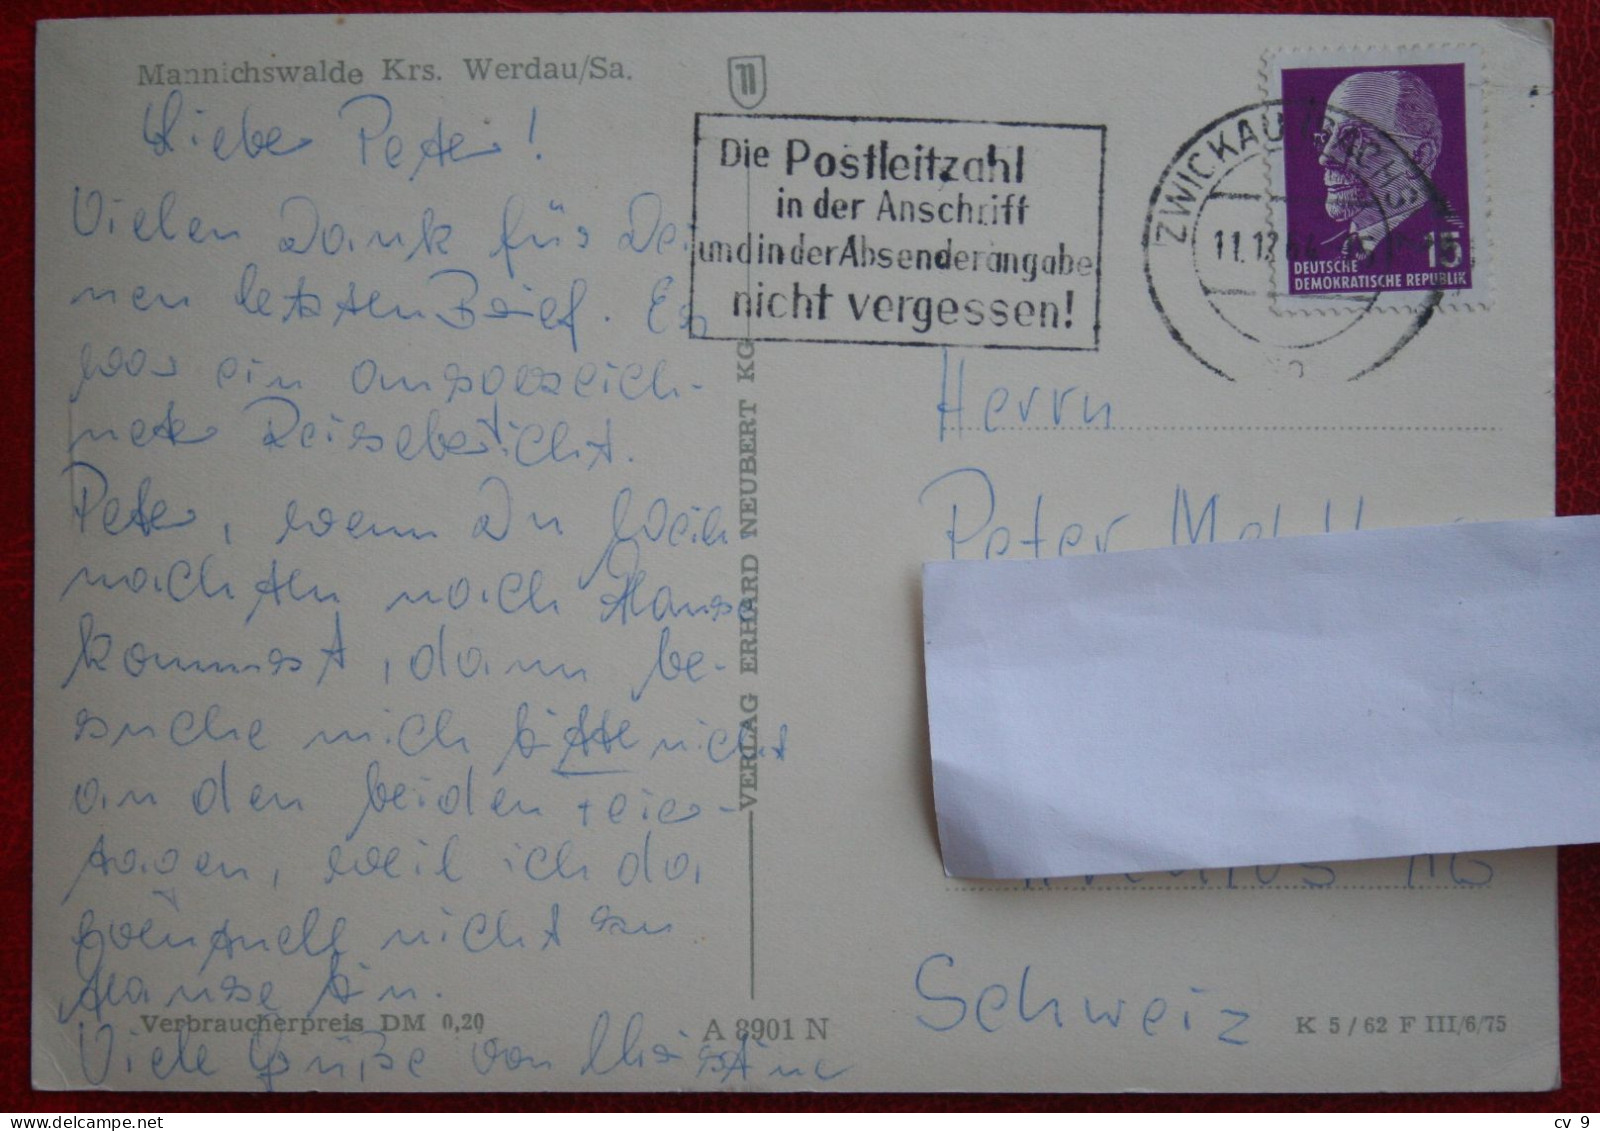 Mannichswalde Krs. Werdau/Sa.
Lieber Peter!
Vielen Dank für Dei-
nen letzten Brief. Es
war ein ausgezeich-
neter Reisebericht.
Peter, wenn Du Weih
nachten nach Hause
kommst, dann be-
suche mich bitte nicht
an den beiden Feier-
tagen, weil ich da
eventuell nicht zu
Hause bin.
Viele Grüße von Christine
Verbraucherpreis DM 0,20
A 8901 N
VERLAG ERHARD NEUBERT KG
Die Postleitzahl
in der Anschrift
und in der Absenderangabe
nicht vergessen!
ZWICKAU (SACHS)
15
DEUTSCHE
DEMOKRATISCHE REPUBLIK
Herrn
Peter
Schweiz
K 5/62 F III/6/75
cv 9